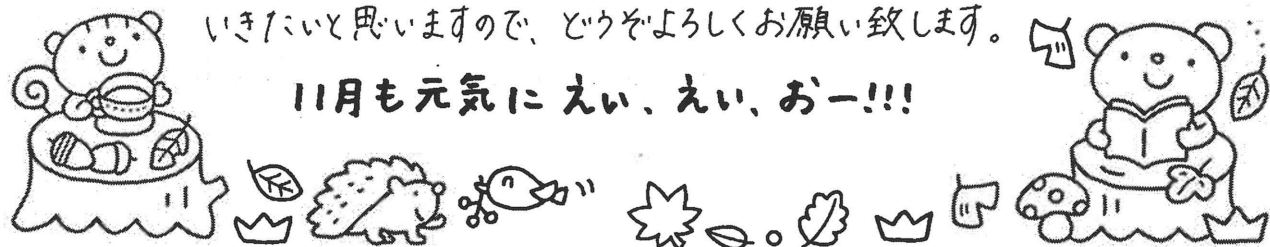 いきたいと思いますので、どうぞよろしくお願い致します。
11月も元気に えい、えい、おー!!!